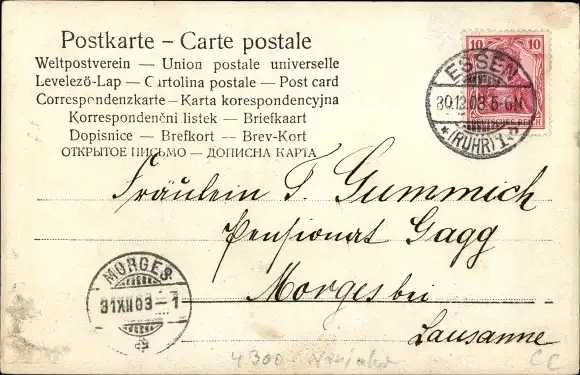 Postkarte – Carte postale
Weltpostverein — Union postale universelle
Levelező-Lap — Cartolina postale — Post card
Correspondenzkarte – Karta korespondencyjna
Korrespondenční listek — Briefkaart
Dopisnice — Brefkort — Brev-Kort
ОТКРЫТОЕ ПИСЬМО — ДОПИСНА КАРТА
10 10
DEUTSCHES REICH
ESSEN
30.12.03.6-7N
*(RUHR)1.
Fräulein T. Gummich
Pensionat Gagg
Morges bei
Lausanne
MORGES
31XII03–1
4300 Neujahr
CC